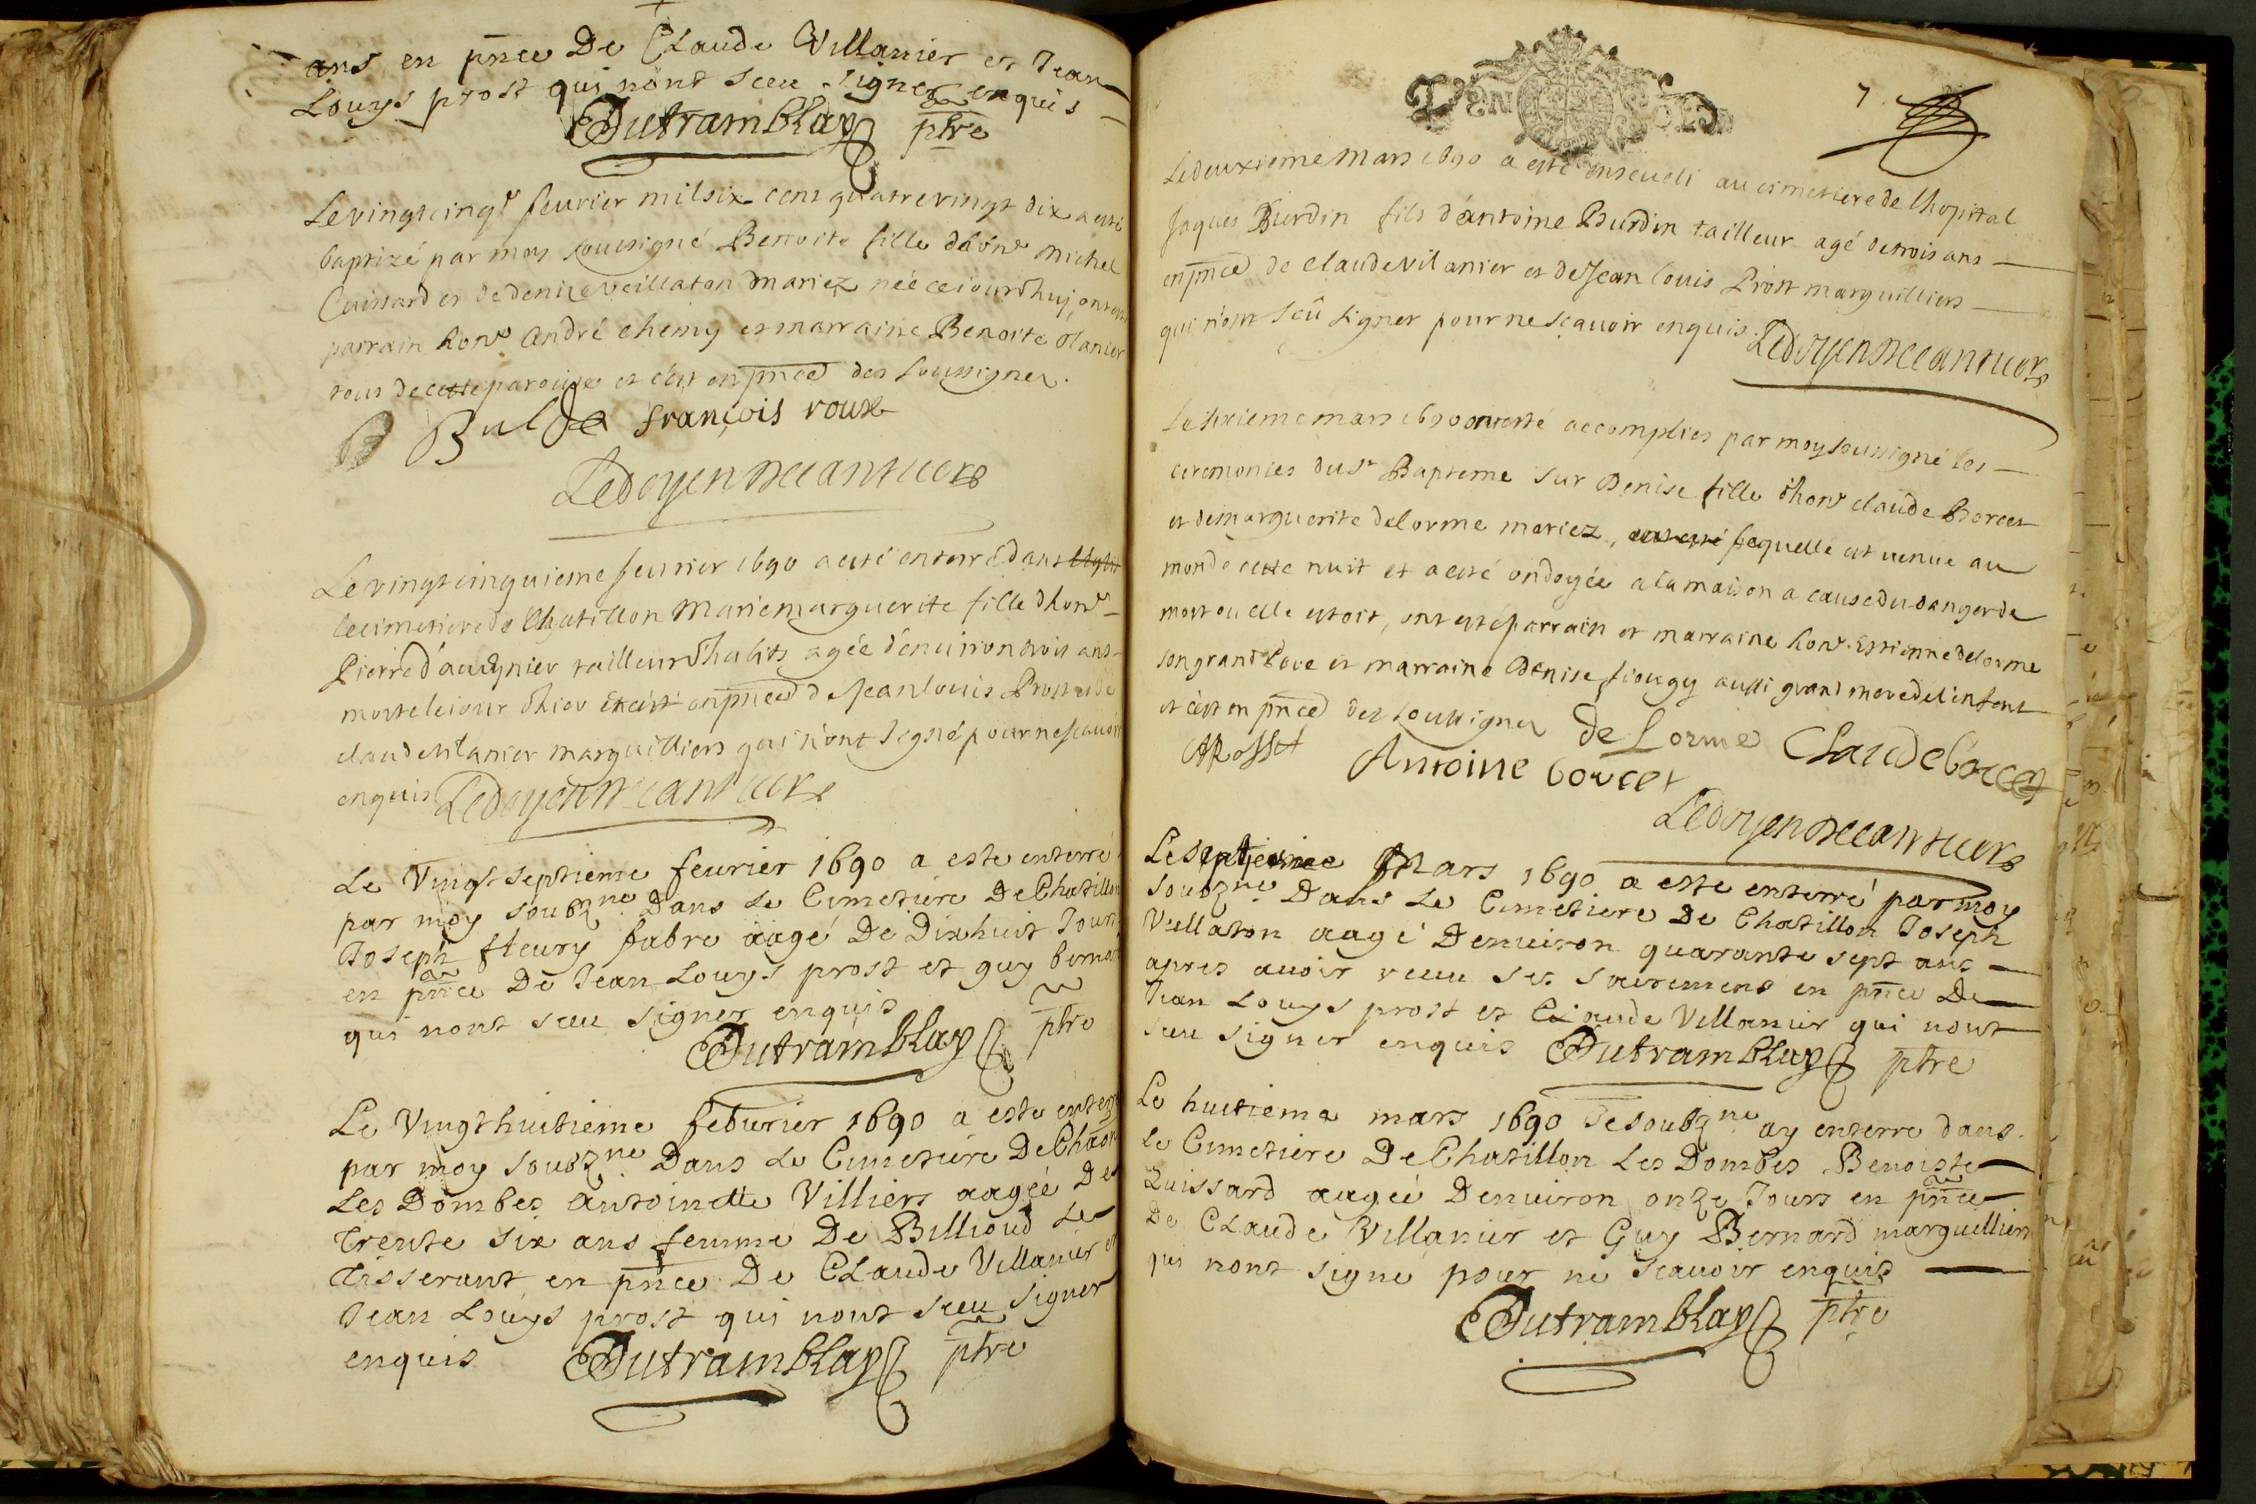 ans en pñce De Claude Villanier et Jean
Louys prost qui nont sceu signer enquis
Dutramblay ptre
Le vingt cinqe feurier mil six cent quatre vingt dix a esté
baptizé par moy soussigné Benoite fille d'hone Michel
Cuissard et de denize Veillaton mariez née ce iourdhuy, ont esté
parrain hone André chemy et marraine Benoite
tous de cette paroisse et c'est en pñce des soussignez.
B Bulda françois roux
Ledoyen
Le vingt cinquieme feurier 1690 a esté enterré dans
le cimetiere de Chatillon Marie marguerite fille d'hone
Pierre d'auignier tailleur d'habits agée d'enuiron trois ans
morte le iour d'hier et c'est en pñce de Jean louis Prost et de
claude vilanier marguilliers qui n'ont signé pour ne scauoir
enquis Ledoyen
Le Vingt septieme feurier 1690 a este enterré
par moy soubzne Dans le Cimetiere De Chatillon
Joseph fleury fabre aagé De Dixhuit Jours
en pñce De Jean Louys prost et guy bernard
qui nont sceu signer enquis
Dutramblay ptre
Le Vingt huitieme feburier 1690 a este enterré
par moy soubzne Dans le Cimetiere De Chaon
Les Dombes Antoinette Villiers aagée De
trente six ans femme De Billioud Le
tisserant en pñce De Claude Villanier et
Jean Louys prost qui nont sceu signer
enquis Dutramblay ptre
7
Le deuxieme Mars 1690 a esté enseueli au cimetiere de lhopital
Jaques Burdin fils d'antoine Burdin tailleur agé de trois ans
en pñce de claude vilanier et de Jean louis Prost marguilliers
qui n'ont sçû signer pour ne scauoir enquis. Ledoyen
Le sixieme mars 1690 ont esté accomplies par moy soussigné les
ceremonies du St Bapteme sur Denise fille d'hone claude Borcet
et de marguerite delorme mariez, laquelle est venue au
monde cette nuit et a esté ondoyée a la maison a cause du danger de
mort ou elle estoit, ont esté parrain et marraine hone Estienne delorme
son grand Pere et marraine Denise fiougy aussi grand mere de lenfant
et c'est en pñce des soussignez De Lorme Claude borcet
ARosset Antoine borcet
Ledoyen
Le septieme Mars 1690 a este enterré par moy
soubzne Dans le Cimetiere De Chatillon Joseph
Vullaton aagé Denuiron quarante sept ans
apres auoir receu ses sacremens en pñce De
Jean Louys prost et Claude Villanier qui nont
sceu signer enquis Dutramblay ptre
Le huitieme mars 1690 Je soubzne ay enterre dans
le Cimetiere De Chatillon Les Dombes Benoiste
Quissard aagée Denuiron onze Jours en pñce
De Claude Villanier et Guy Bernard marguelliers
qui nont signé pour ne scauoir enquis
Dutramblay ptre